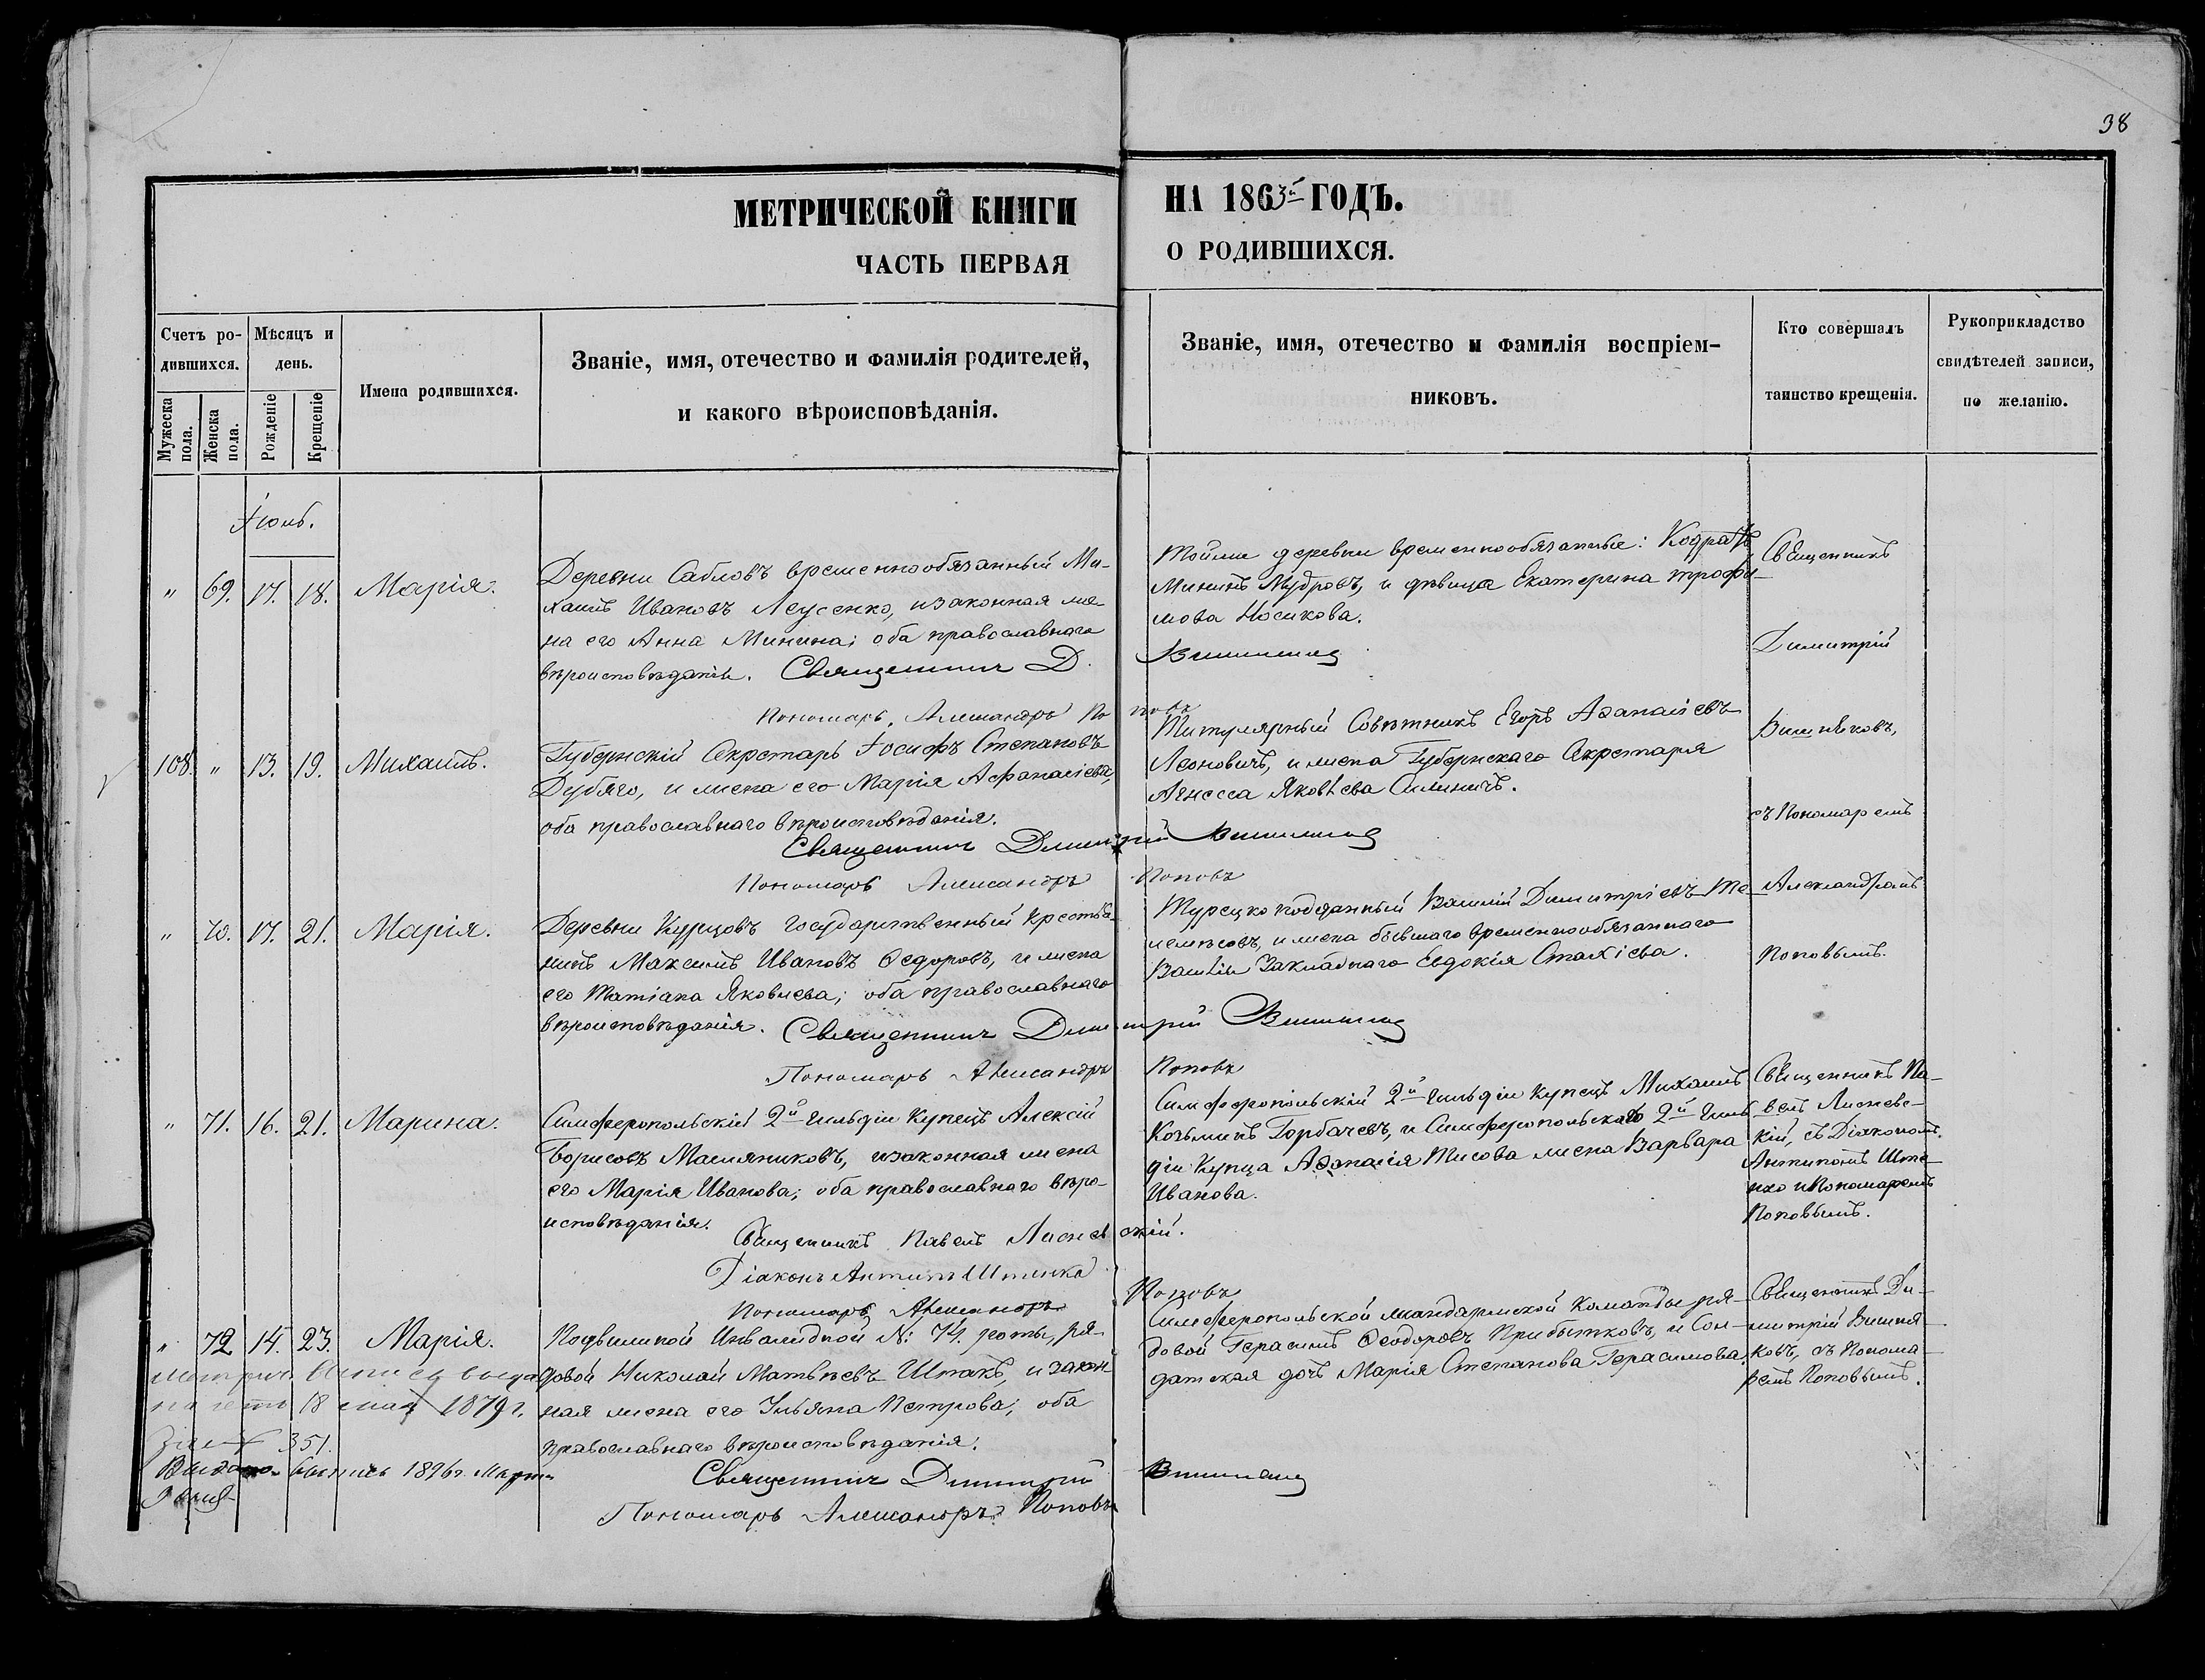 38
МЕТРИЧЕСКОЙ КНИГИ НА 1863й ГОДЪ.
ЧАСТЬ ПЕРВАЯ О РОДИВШИХСЯ.
Счетъ родившихся.
Мужеска пола.
Женска пола.
Мѣсяцъ и день.
Рожденіе
Крещеніе
Имена родившихся.
Званіе, имя, отечество и фамилія родителей,
и какого вѣроисповѣданія.
Званіе, имя, отечество и фамилія воспріем-
никовъ.
Кто совершалъ
таинство крещенія.
Рукоприкладство
свидѣтелей записи,
по желанію.
Іюнь.
" 69. 17. 18. Марія.
Деревни Сабловъ временнообязанный Ми-
хаилъ Ивановъ Леусенко, и законная же-
на его Анна Минина; оба православнаго
вѣроисповѣданія. Священникъ Д.
Пономарь Александръ По
Тойже деревни временнообязанные: Кодратъ
Мининъ Мудровъ, и дѣвица Екатерина Трофи-
мова Носикова.
повъ
Священникъ
Димитрій
Вишняковъ,
съ Пономаремъ
Александромъ
Поповымъ.
108. " 13. 19. Михаилъ.
Губернскій Секретарь Іосифъ Степановъ
Дубяго, и жена его Марія Афанасіева,
оба православнаго вѣроисповѣданія.
Священникъ Димитрій
Пономарь Александръ Поповъ
Титулярный Совѣтникъ Егоръ Аѳанасіевъ
Леоновичъ, и жена Губернскаго Секретаря
Агнесса Яковлева Силиничъ.
" 70. 17. 21. Марія.
Деревни Курцовъ государственный крестья-
нинъ Максимъ Ивановъ Ѳедоровъ, и жена
его Татіана Яковлева; оба православнаго
вѣроисповѣданія. Священникъ Димитрій
Пономарь Александръ Поповъ
Турецкоподданный Василій Димитріевъ
и жена бывшаго временнообязаннаго
Василія Закладнаго Евдокія Стахіева.
" 71. 16. 21. Марина.
Симферопольскій 2й гильдіи Купецъ Алексій
Борисовъ Масляниковъ, и законная жена
его Марія Иванова; оба православнаго вѣро-
исповѣданія.
Священникъ Павелъ
Діаконъ Антипъ Штенко
Пономарь Александръ Поповъ
Симферопольскій 2й гильдіи Купецъ Михаилъ
Козьминъ Горбачевъ, и Симферопольскаго 2й гиль-
діи Купца Аѳанасія Тисова жена Варвара
Иванова.
Священникъ Па-
велъ
кій, съ Діакономъ
Антипомъ Ште-
нко и Пономаремъ
Поповымъ.
" 72. 14. 23. Марія.
Подвижной Инвалидной №: 74. роты, ря-
довой Николай Матвѣевъ Шпакъ, и закон-
ная жена его Ульяна Петрова; оба
православнаго вѣроисповѣданія.
Священникъ Димитрій
Пономарь Александръ Поповъ
Симферопольской жандармской команды ря-
довой Герасимъ Ѳеодоровъ Прибытковъ, и Сол-
датская дочь Марія Степанова Герасимова.
Священникъ Ди-
митрій Вишня-
ковъ, съ Понома-
ремъ Поповымъ.
18 мая 1879 г.
351.
выпись 1896 г. Марта